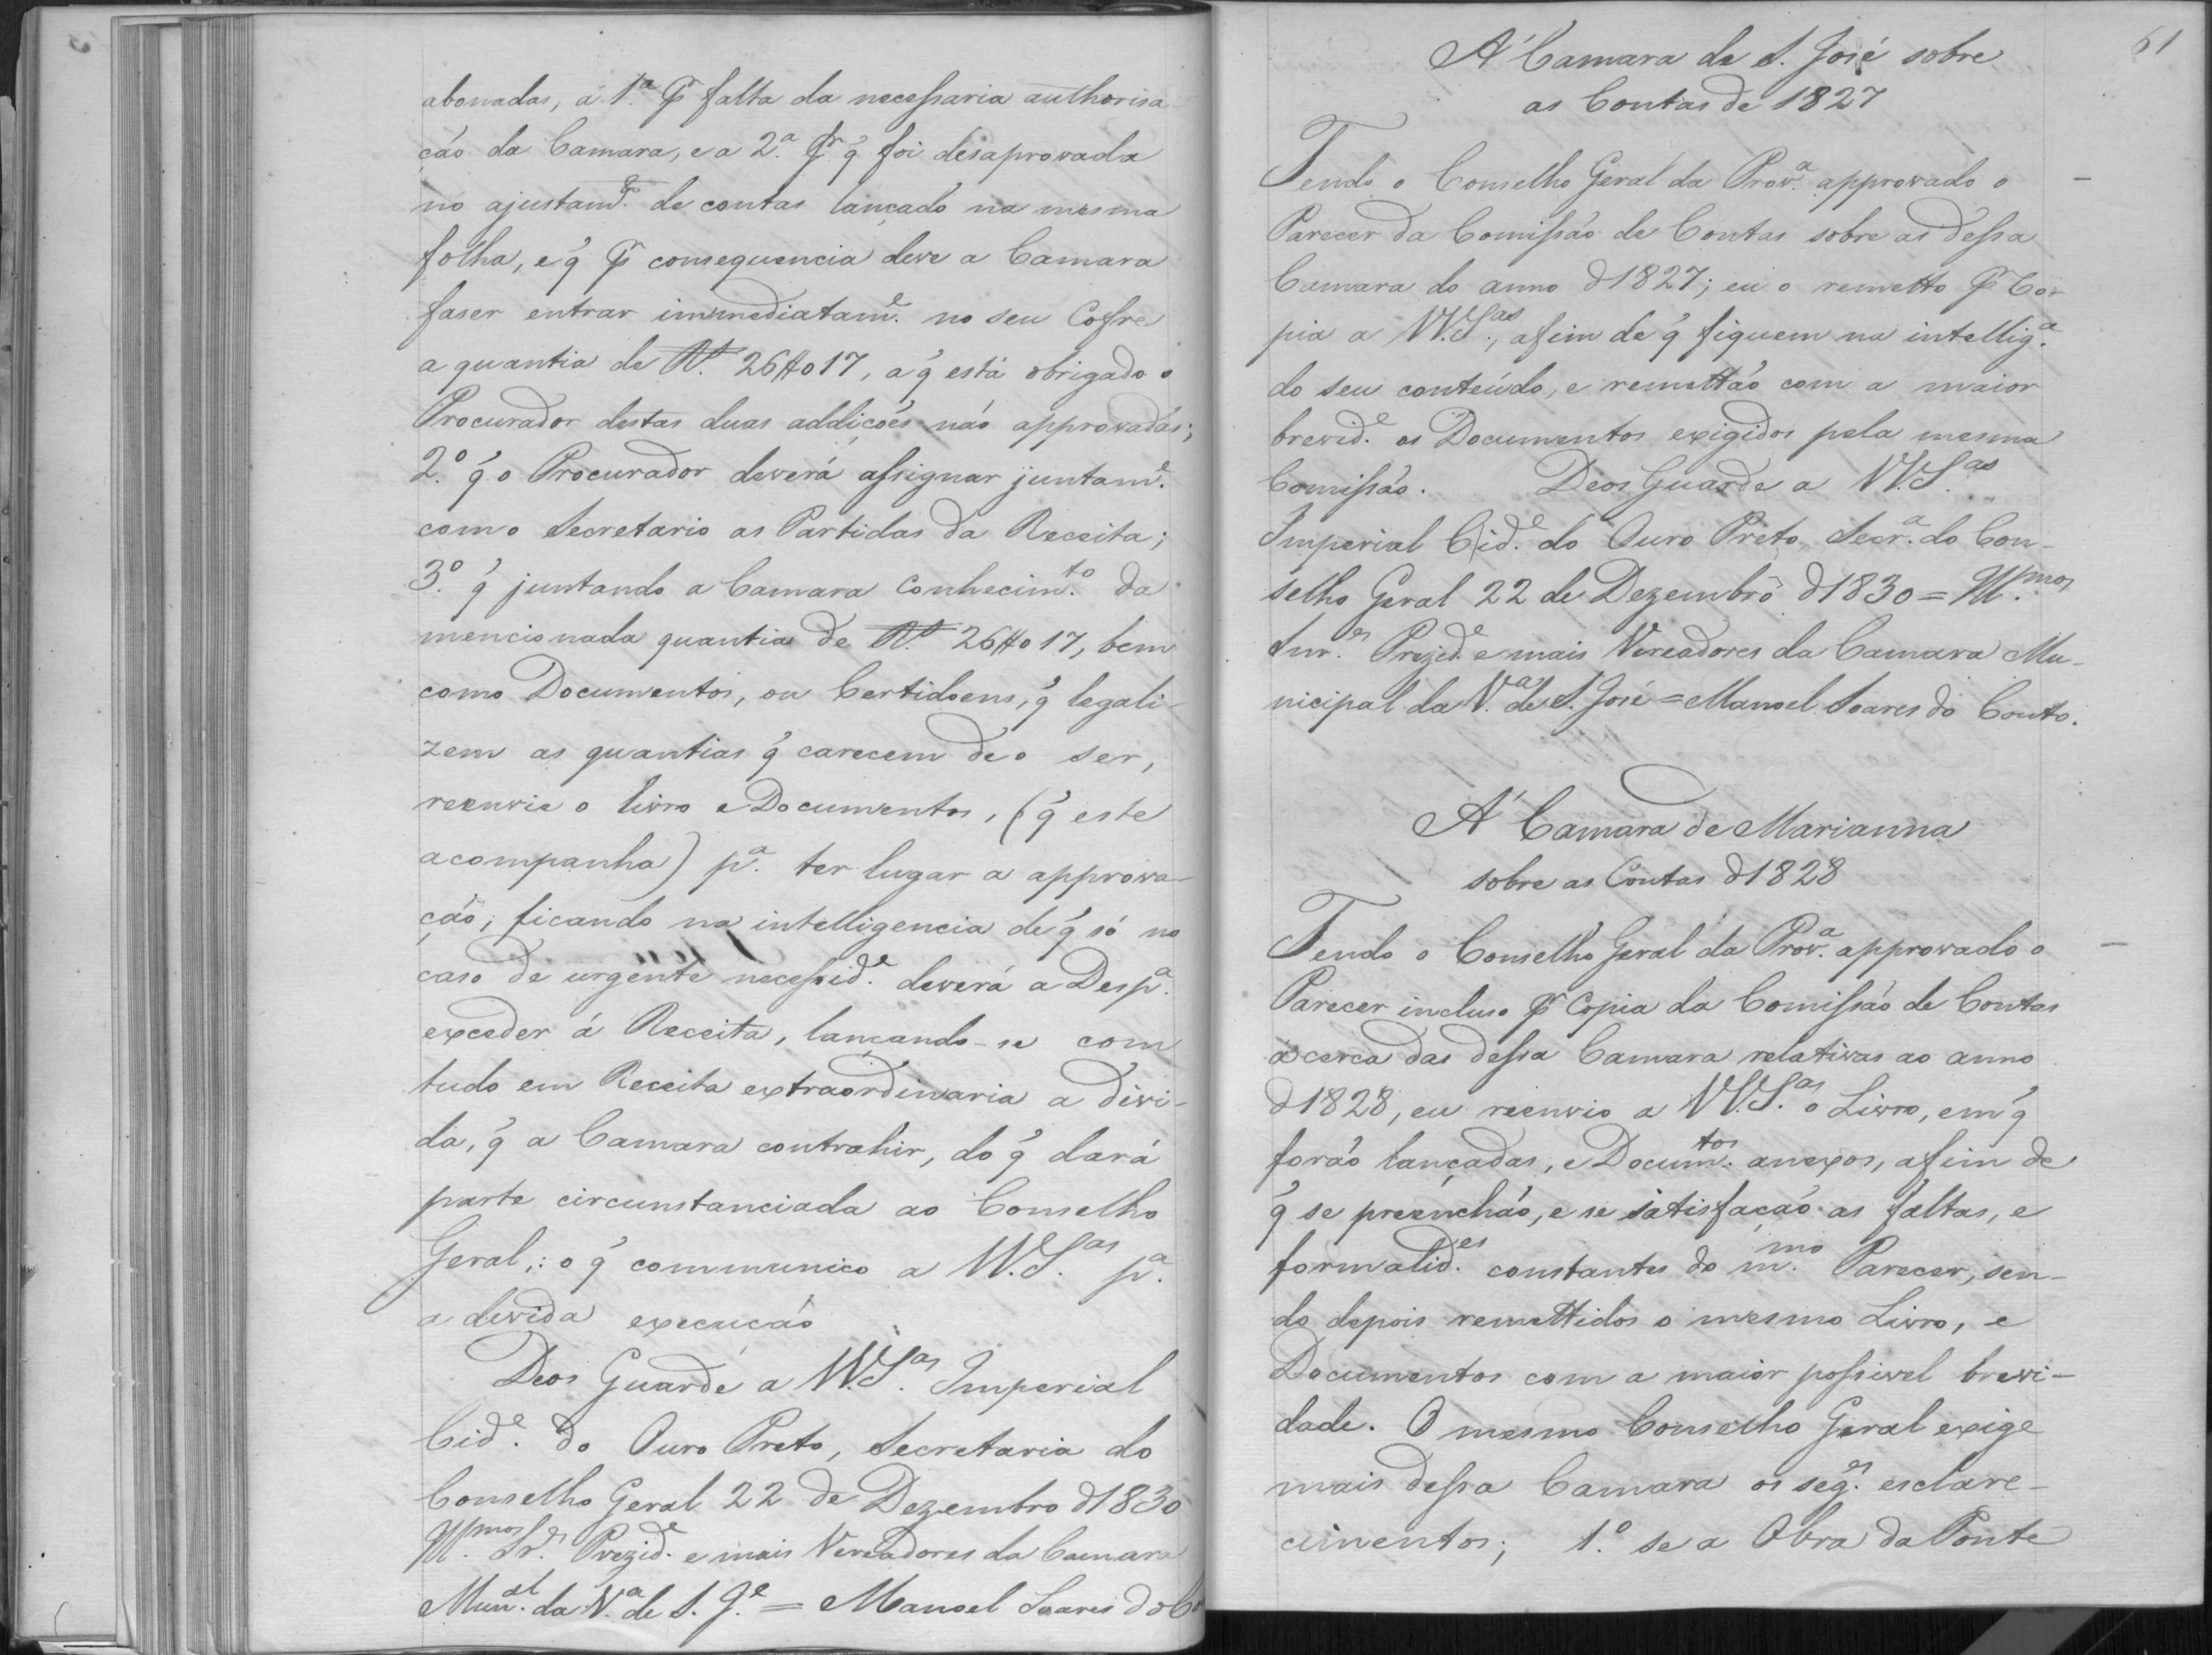 abonadas, a 1.ª pr falta da necessaria authorisa-
ção da Camara, e a 2.ª pr q̃ foi desaprovada
no ajustam.to de contas lançado na mesma
folha, e q̃ pr consequencia deve a Camara
faser entrar immediatam.e no seu Cofre
a quantia de R.s 26$017, a q̃ está obrigado o
Procurador destas duas addições não approvadas;
2.º q̃ o Procurador deverá assignar juntam.e
com o Secretario as Partidas da Receita;
3.º q̃ juntando a Camara Conhecim.to da
mencionada quantia de R.s 26$017, bem
como Documentos, ou Certidoens, q̃ legali-
zem as quantias q̃ carecem de o ser,
reenvie o livro e Documentos, (q̃ este
acompanha) p.ª ter lugar a approva-
ção; ficando na intelligencia de q̃ só no
caso de urgente necessid.e deverá a Desp.ª
exceder á Receita, lançando-se com
tudo em Receita extraordinaria a divi-
da, q̃ a Camara contrahir, do q̃ dará
parte circunstanciada ao Conselho
Geral,: o q̃ communico a VV.S.as p.ª
a devida execução
Deos Guarde a VV.S.as Imperial
Cid.e do Ouro Preto, Secretaria do
Conselho Geral 22 de Dezembro d1830
Ill.mos Sr.es Prezid.e e mais Vereadores da Camara
Mun.al da V.ª de S. J.e = Manoel Soares do Co
61
Á Camara de S. José sobre
as Contas de 1827
Tendo o Conselho Geral da Prov.ª approvado o
Parecer da Comissão de Contas sobre as dessa
Camara do anno d1827; eu o remetto pr Co-
pia a VV.S.as, afim de q̃ fiquem na intellig.ª
do seu conteúdo, e remettão com a maior
brevid.e os Documentos exigidos pela mesma
Comissão. Deos Guarde a VV.S.as
Imperial Cid.e do Ouro Preto, Secr.ª do Con-
selho Geral 22 de Dezembro d1830 = Ill.mos
Snr.es Prezid.e e mais Vereadores da Camara Mu-
nicipal da V.ª de S. José = Manoel Soares do Couto.
Á Camara de Marianna
sobre as Contas d1828
Tendo o Conselho Geral da Prov.ª approvado o
Parecer incluso pr Copia da Comissão de Contas
ácerca das dessa Camara relativas ao anno
d1828, eu reenvio a VV.S.as o Livro, em q̃
forão lançadas, e Docum.tos anexos, afim de
q̃ se preenchão, e se satisfação as faltas, e
formalid.es constantes do m.mo Parecer, sen-
do depois remettidos o mesmo Livro, e
Documentos com a maior possivel brevi-
dade. O mesmo Conselho Geral exige
mais dessa Camara os seg.es esclare-
cimentos; 1.º se a Obra da Ponte